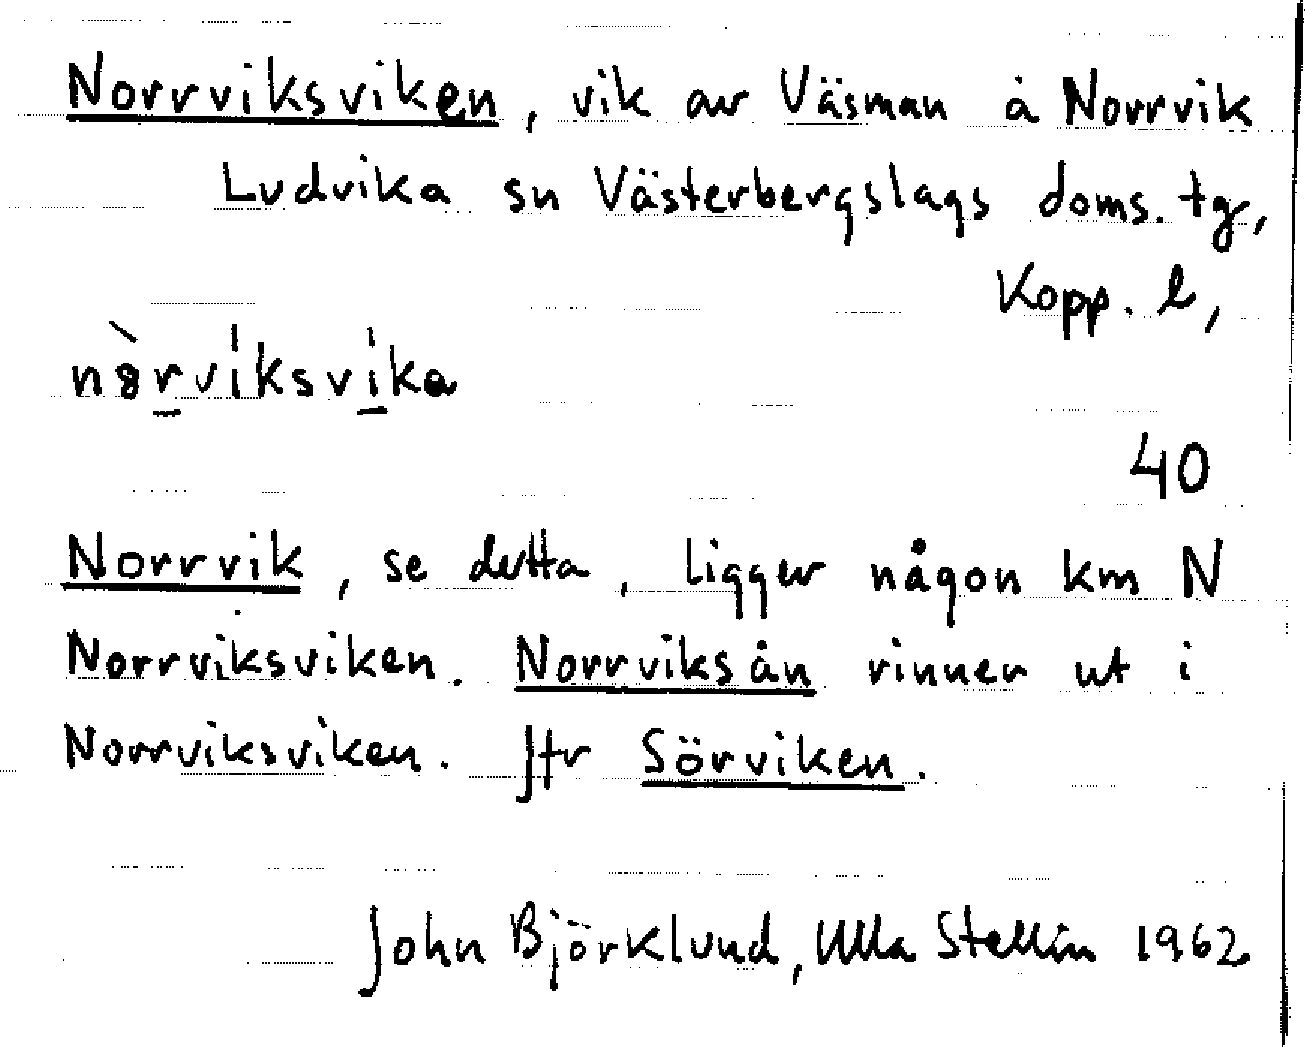 Norrviksviken, vik av Väsman å Norrvik
Ludvika sn Västerbergslags doms. tg,
Kopp. l,
nòrviksvika
40
Norrvik, se detta, ligger någon km N
Norrviksviken. Norrviksån rinner ut i
Norrviksviken. Jfr Sörviken.
John Björklund, Ulla Stellin 1962